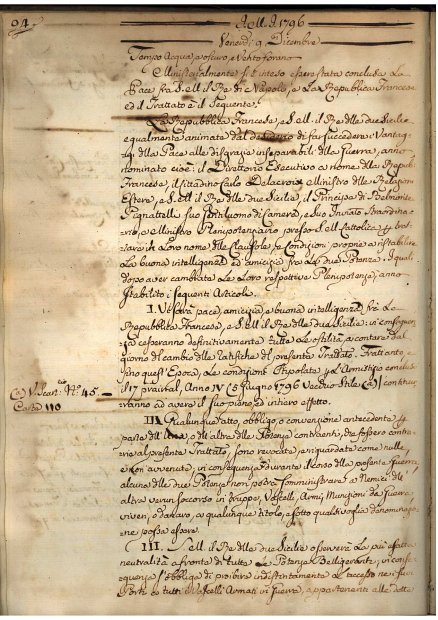 94
A.M. 1796
Venerdì 9. Dicembre
Tempo Acqua, oscuro, e Vento
Ministerialmente si è inteso essere stata conclusa La
Pace fra S. M. il Re di Napoli, e La Repubblica Francese
ed il Trattato è il Seguente.
La Repubblica Francese, e S. M. il Re delle due Sicilie
egualmente animate dal desiderio di far succedere i Vantag-
gj della Pace alle disgrazie inseparabili della Guerra, anno
nominato cioè: il Direttorio Esecutivo a nome della Repub.
Francese, il Cittadino Carlo Delacroix Ministro delle Relazioni
Estere, e S. M. il Re delle due Sicilie, il Principe di Belmonte
Pignatelli suo Gentiluomo di Camera, e suo Inviato Straordina-
rio, e Ministro Plenipotenziario presso S. M. Cattolica
in Loro nome delle clausole, e condizioni proprie a ristabilire
La buona intelligenza ed amicizia fra Le due Potenze. I quali
dopo aver cambiate Le Loro respettive Plenipotenze, anno
Stabilito i seguenti Articoli.
I. Vi sarà pace, amicizia e buona intelligenza fra La
Repubblica Francese, e S. M. il Re delle due Sicilie: in conseguen-
za cesseranno definitivamente tutte Le ostilità, a contare dal
giorno del cambio delle ratifiche del presente Trattato. Frattanto, e
fino a quest'Epoca, Le condizioni stipolate nel Armistizio concluso
il 17 prairial, Anno IV (5 Giugno 1796 Vecchio Stile (a)) continue-
ranno ad avere il suo pieno, ed intiero effetto.
(a) V. Scan. Nº. 45.
Carta 110
II. Qualunque atto, obbligo, o convenzione antecedente
parte dell'Una, o dell'altra delle Potenze contraenti, che fossero contra-
rie al presente Trattato, sono revocate, e riguardate come nulle,
e non avvenute, in conseguenza durante il corso della presente Guerra,
alcuna delle due Potenze non potrà somministrare a Nemici dell'
altra verun soccorso in truppe, Vascelli, Armi, Munizioni da Guerra,
viveri, o danaro, a qualunque titolo, e sotto qualsivoglia denominazio-
ne possa essere.
III. S. M. il Re delle due Sicilie osserverà La più esatta
neutralità a fronte di tutte Le Potenze Belligeranti; in conse-
guenza s'obbliga di proibire indistintamente L'accesso ne' suoi
Porti a tutti i Vascelli Armati in Guerra, appartenenti alle dette